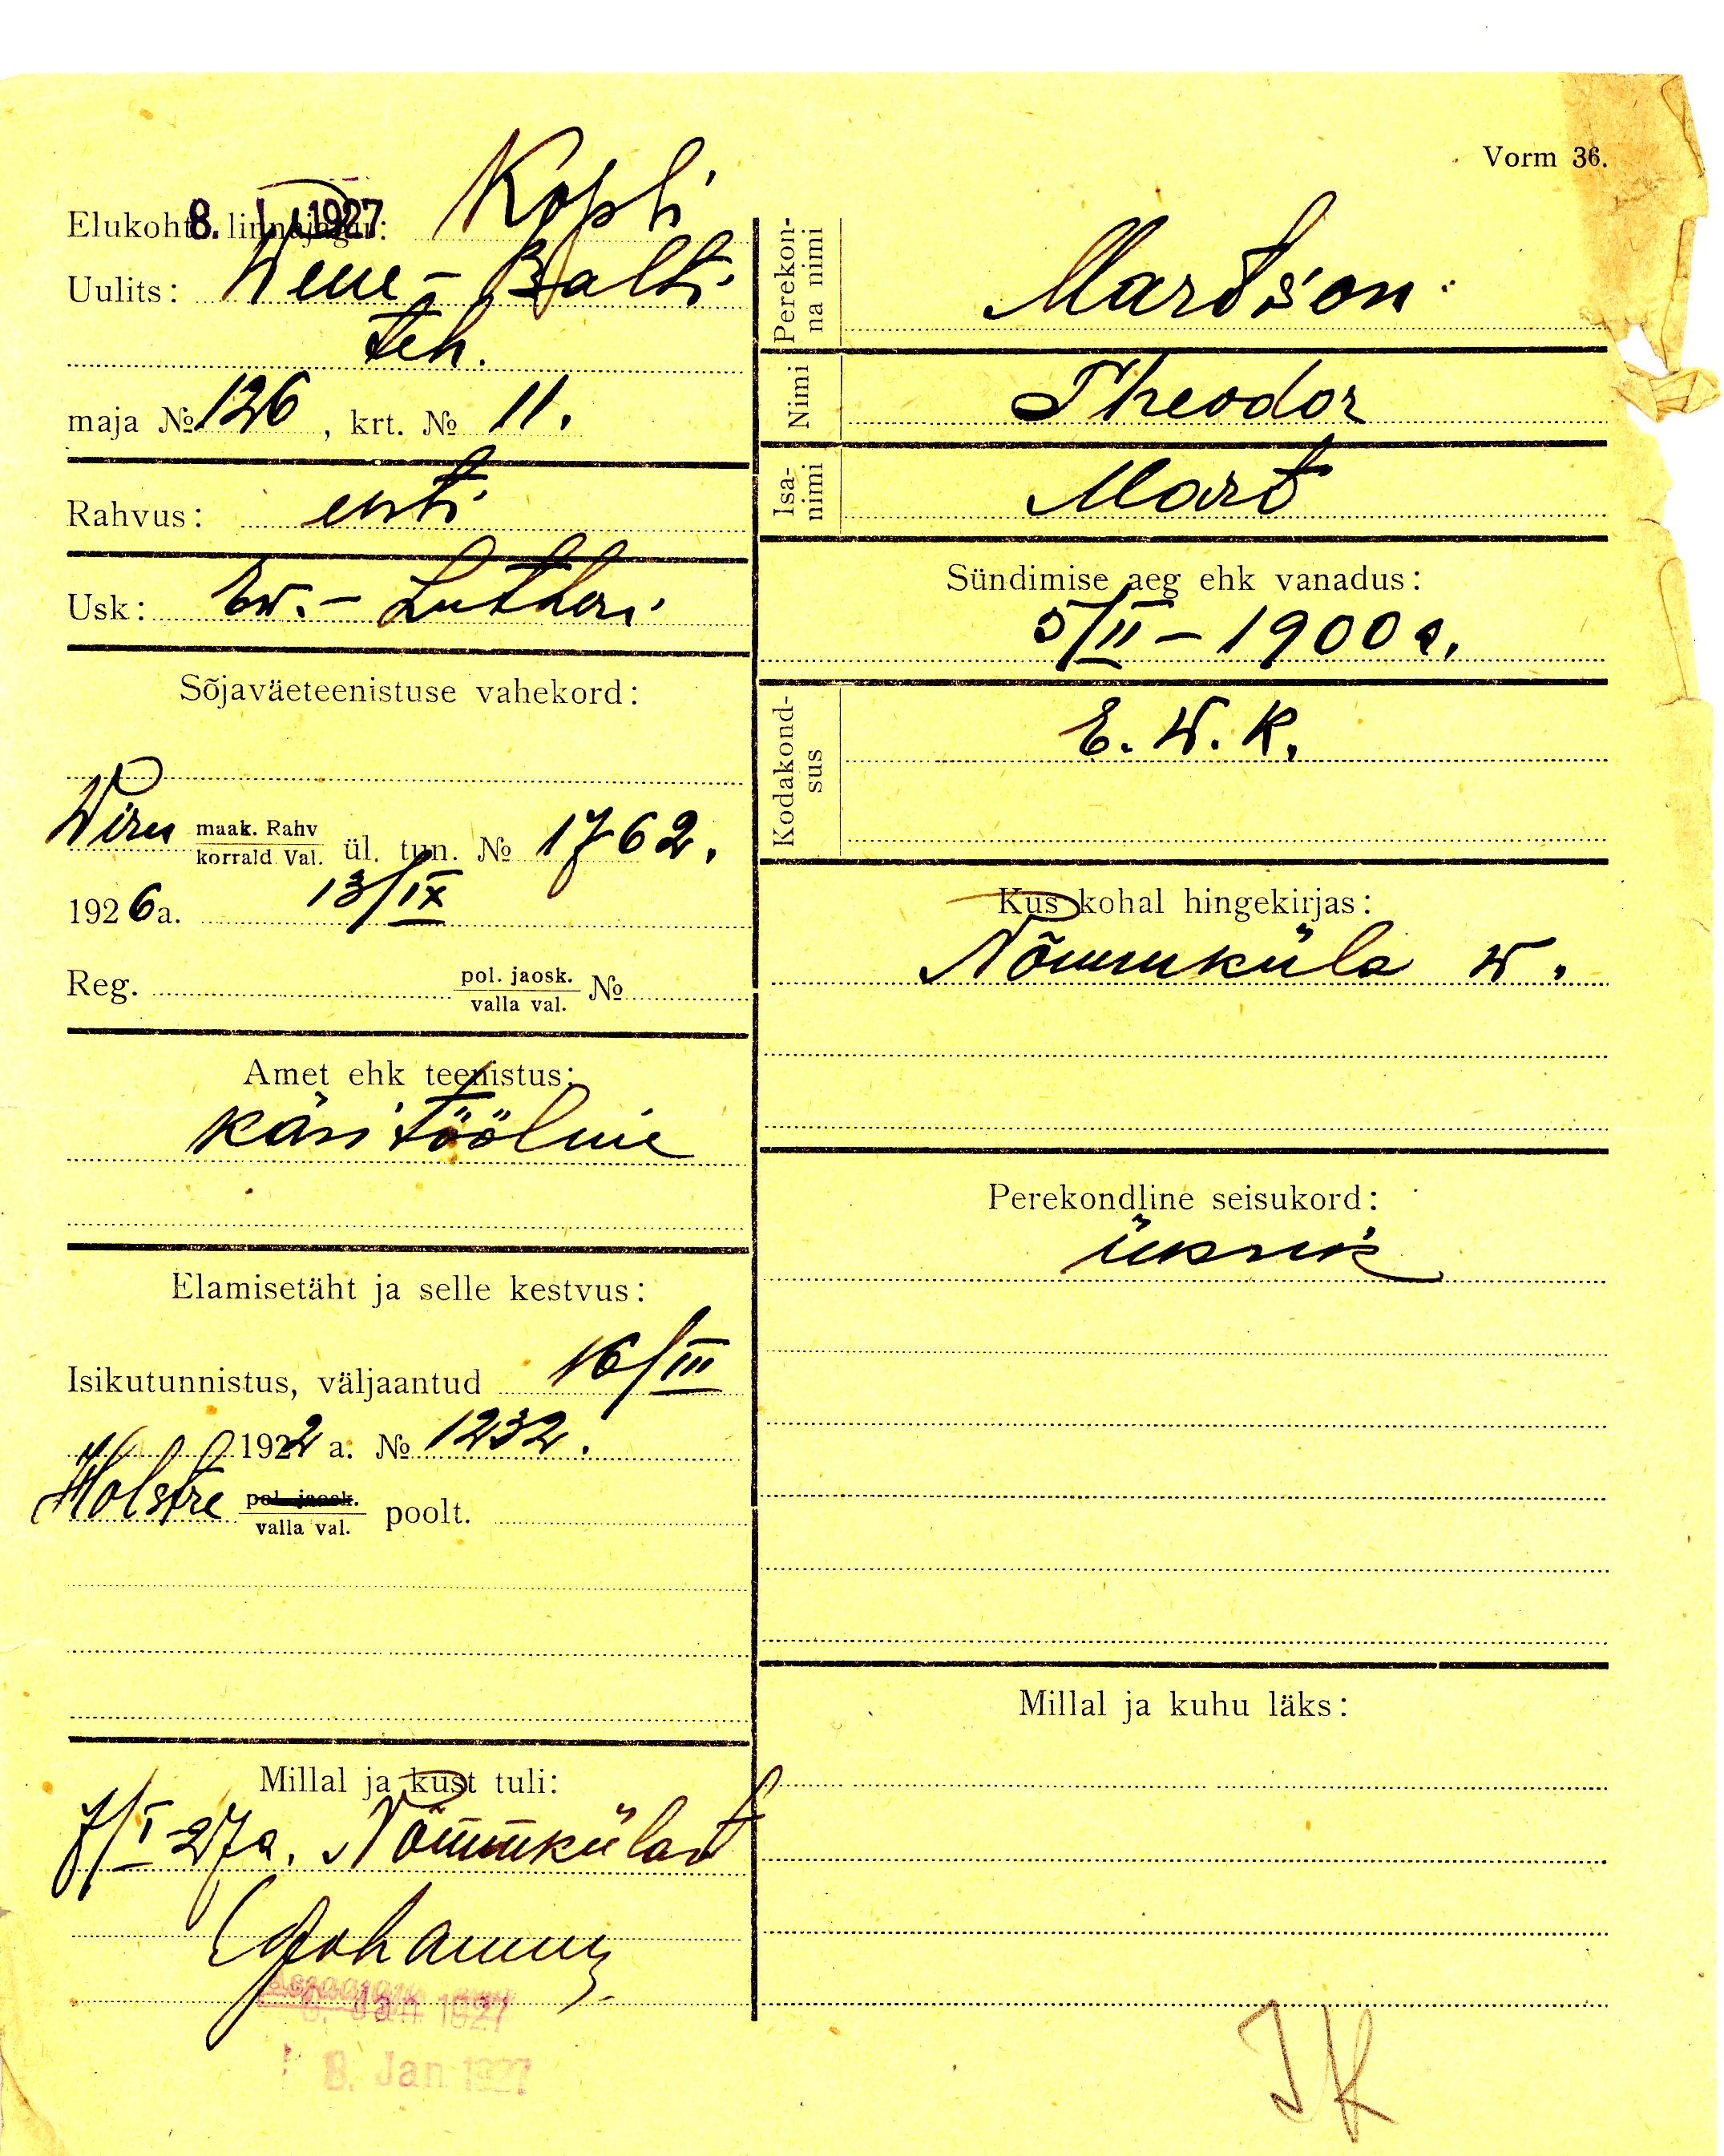 Vorm 36.
Elukoht linnajagu: Kopli
8. I 1927
Uulits: Wene-Balti
teh.
maja № 126, krt. № 11.
Rahvus: eesti
Usk: Ew.-Lutheri
Sõjaväeteenistuse vahekord:
Wiru maak. Rahv
korrald Val. ül. tun. № 1762.
1926a. 13/IX
Reg. pol. jaosk.
valla val. №
Amet ehk teenistus:
käsitööline
Elamisetäht ja selle kestvus:
Isikutunnistus, väljaantud 16/III
1922 a. № 1232.
Holstre pol. jaosk.
valla val. poolt.
Millal ja kust tuli:
7/I-27a. Nõmmkülast
8. Jan 1927
8. Jan 1927
Perekon-
na nimi Martson
Nimi Theodor
Isa-
nimi Mart
Sündimise aeg ehk vanadus:
5/II-1900 a.
Kodakond-
sus E. W. K.
Kus kohal hingekirjas:
Nõmmküla w.
Perekondline seisukord:
üksik
Millal ja kuhu läks:
JK